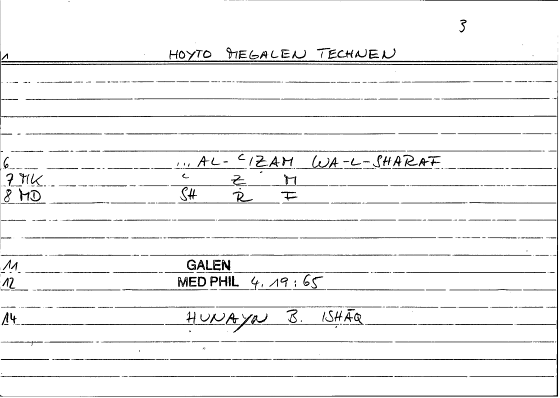 3
1 HOYTO MEGALEN TECHNEN
6 ... AL-ʿIẒAM WA-L-SHARAF
7 MK ʿ Ẓ M
8 MD SH R F
11 GALEN
12 MED PHIL 4.19:65
14 ḤUNAYN B. ISḤĀQ